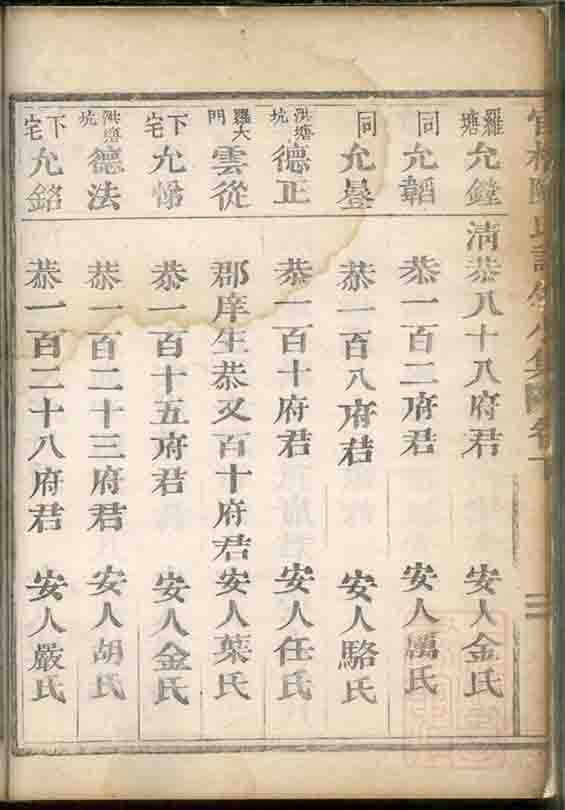 羅塘 允鏜 清恭八十八府君 安人金氏
同 允韜 恭一百二府君 安人厲氏
同 允曇 恭一百八府君 安人駱氏
洪塘坑 德正 恭一百十府君 安人任氏
羅大門 雲從 郡庠生恭又百十府君 安人葉氏
下宅 允悌 恭一百十五府君 安人金氏
洪塘坑 德法 恭一百二十三府君 安人胡氏
下宅 允銘 恭一百二十八府君 安人嚴氏